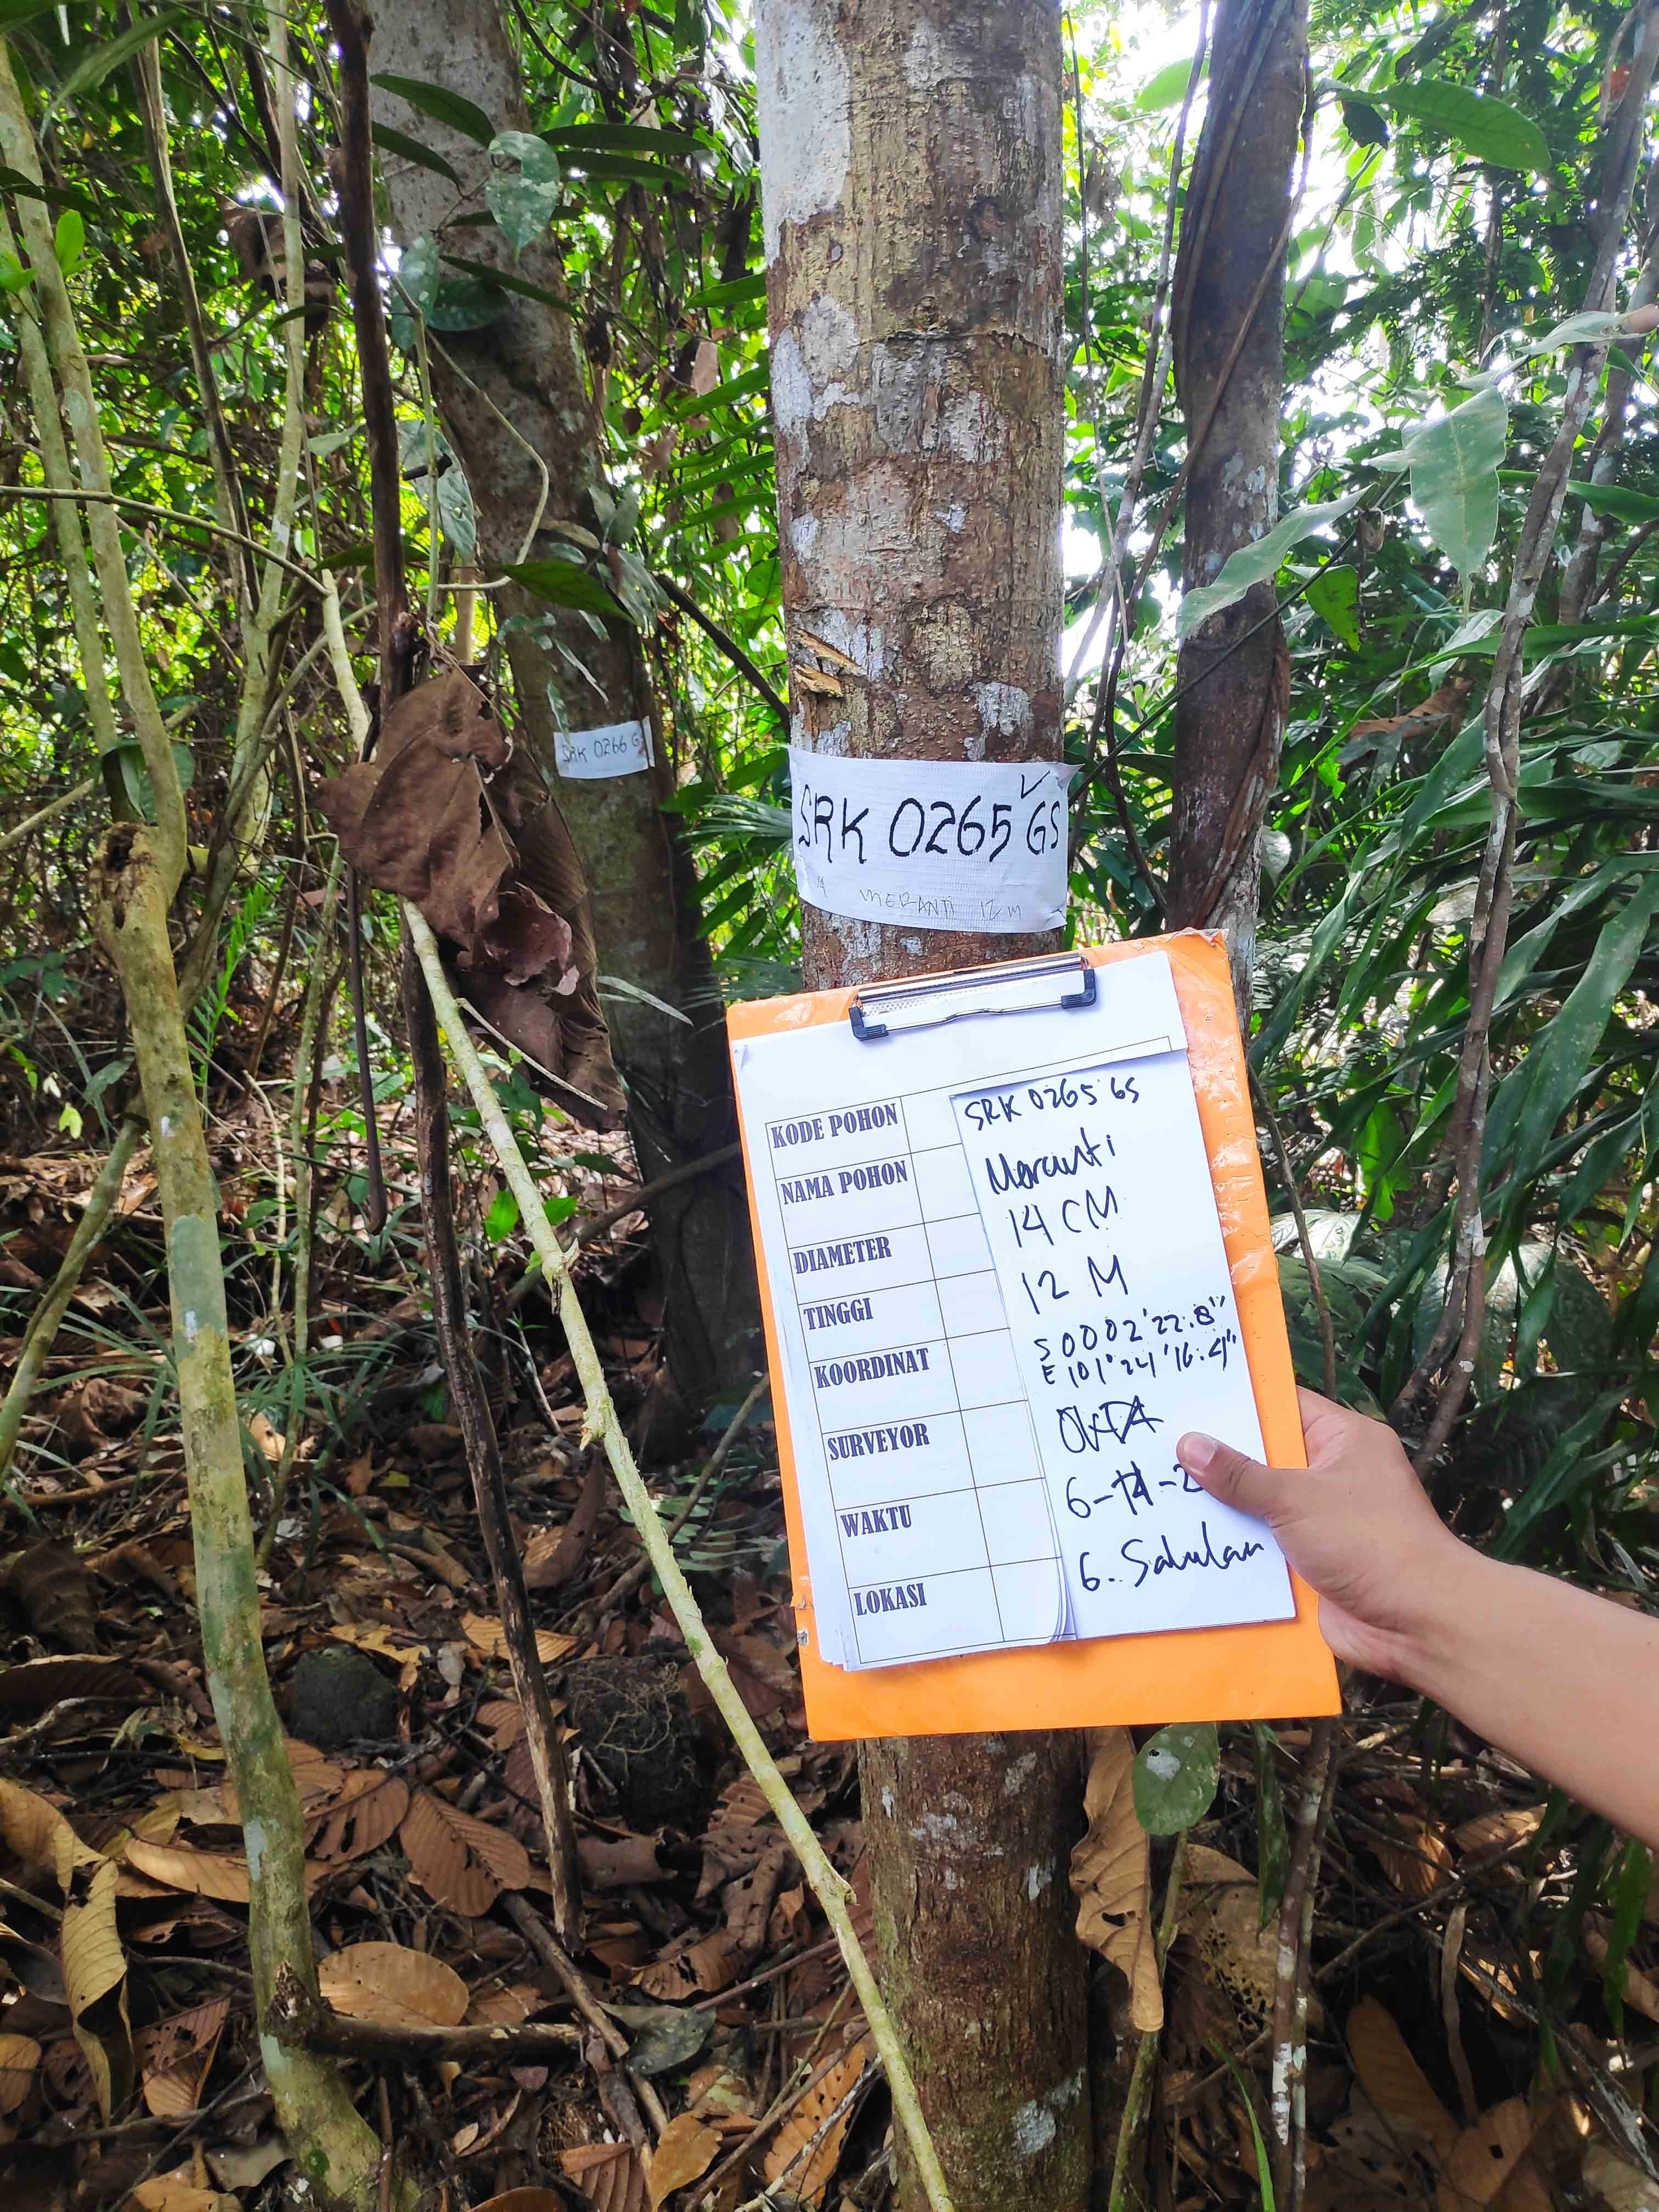 SRK 0266 GS
SRK 0265 GS
14 MERANTI 12 M
KODE POHON SRK 0265 GS
NAMA POHON Meranti
DIAMETER 14 CM
TINGGI 12 M
KOORDINAT S 00 02'22.8"
E 101°24'16.4"
SURVEYOR
WAKTU 6-11-2
LOKASI G. Sahulan